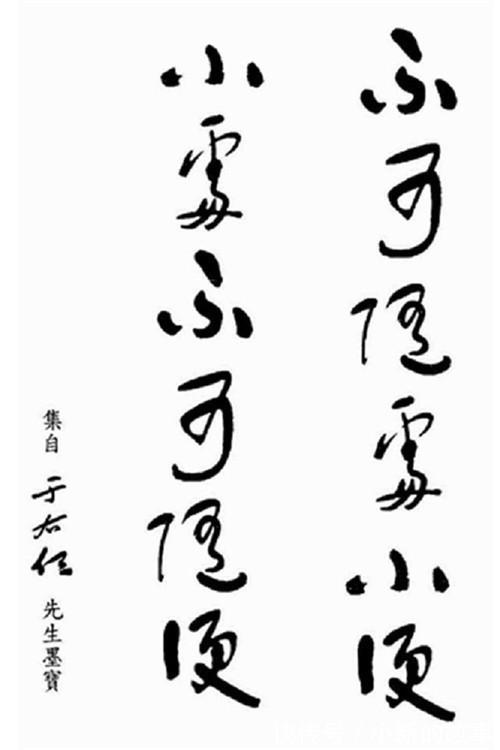 不可随處小便
小處不可随便
集自 于右任 先生墨寶